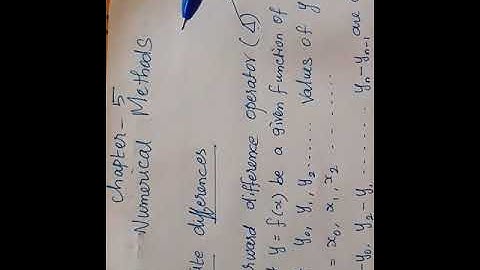 chapter-5
Numerical Methods
differences
difference operator (Δ)
y = f(x) be a given function of
y₀, y₁, y₂ ...... values of y
= x₀, x₁, x₂ ......
y₀, y₂-y₁ ...... yₙ-yₙ₋₁ are